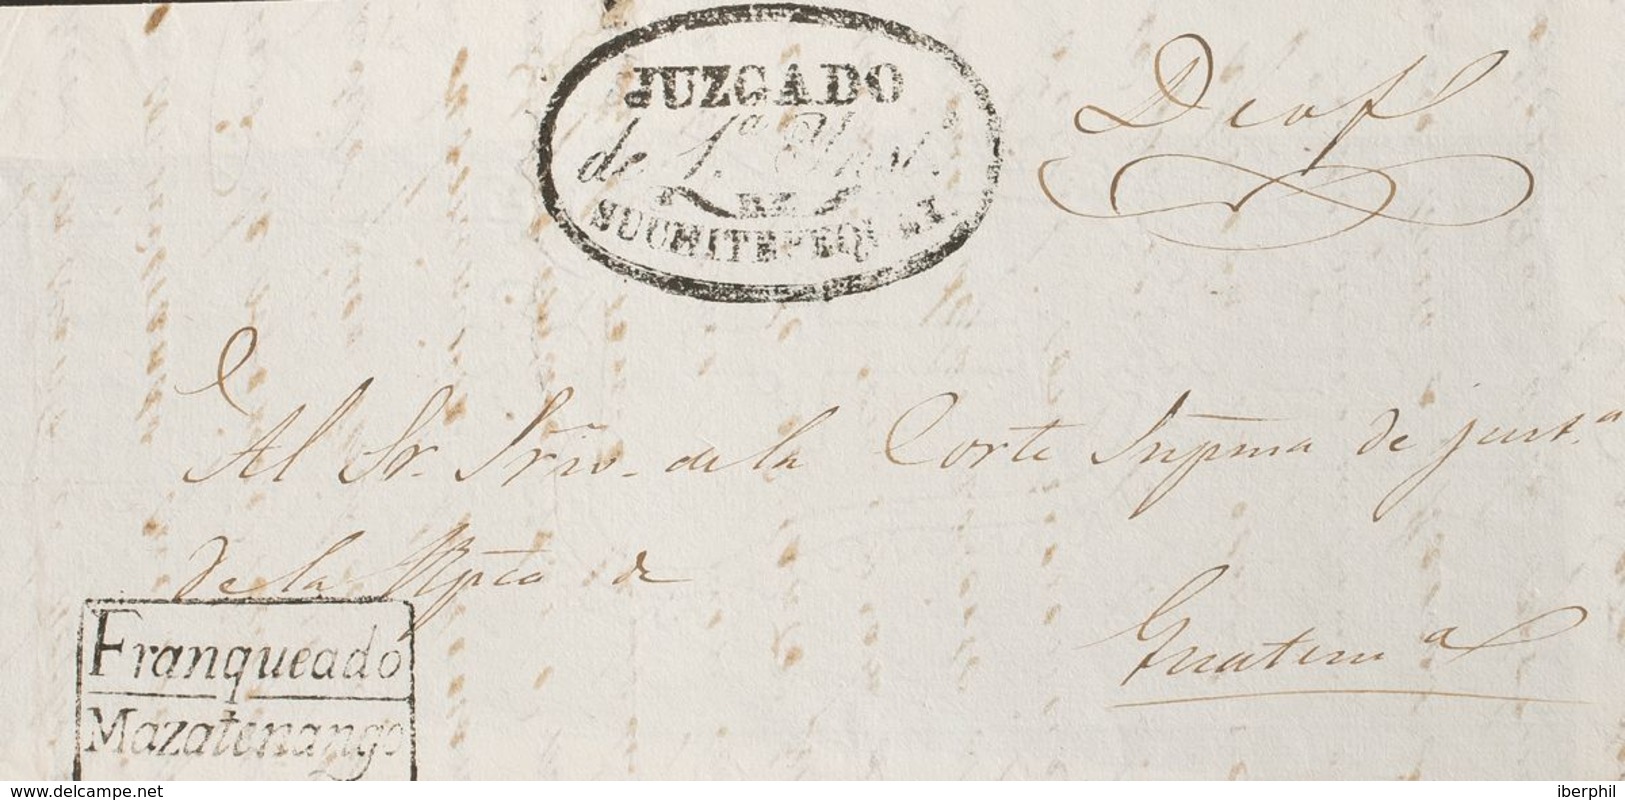 JUZGADO
de 1.ª Inst.ª
DE
SUCHITEPEQUEZ
De of
Al Sr. Srio. de la Corte Supma de just.ª
de la Rpca de
Guatemª
Franqueado
Mazatenango
www.delcampe.net
iberphil